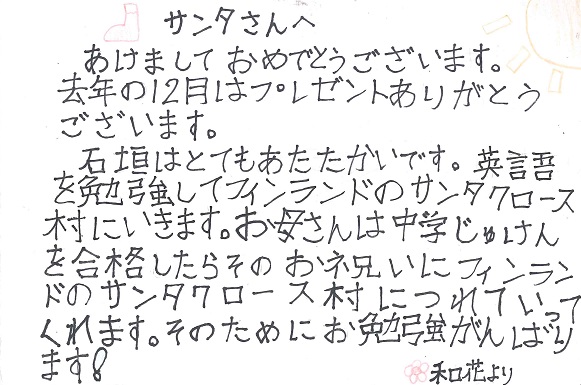 サンタさんへ
あけましておめでとうございます。
去年の12月はプレゼントありがとう
ございます。
石垣はとてもあたたかいです。英言語
を勉強してフィンランドのサンタクロース
村にいきます。お母さんは中学じゅけん
を合格したらそのお祝いにフィンラン
ドのサンタクロース村につれていって
くれます。そのためにお勉強がんばり
ます!
和花より